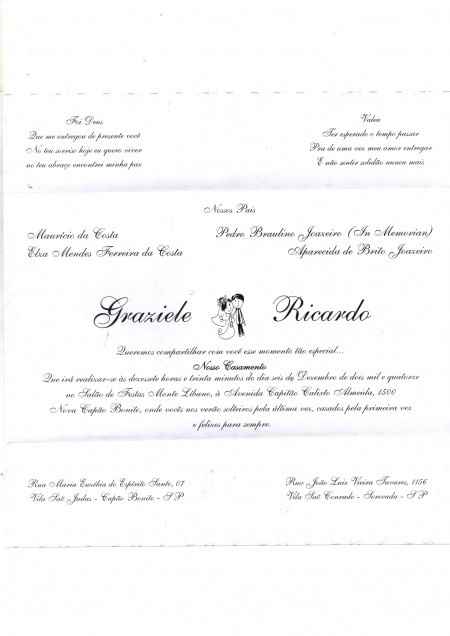 Foi Deus
Que me entregou de presente você
No teu sorriso hoje eu quero viver
no teu abraço encontrei minha paz
Valeu
Ter esperado o tempo passar
Pra de uma vez meu amor entregar
E não sentir solidão nunca mais
Nossos Pais
Maurício da Costa
Elza Mendes Ferreira da Costa
Pedro Braulino Joazeiro (In Memorian)
Aparecida de Brito Joazeiro
Graziele Ricardo
Queremos compartilhar com você esse momento tão especial...
Nosso Casamento
Que irá realizar-se às dezessete horas e trinta minutos do dia seis de Dezembro de dois mil e quatorze
no Salão de Festas Monte Líbano, à Avenida Capitão Calixto Almeida, 1500
Nova Capão Bonito, onde vocês nos verão solteiros pela última vez, casados pela primeira vez
e felizes para sempre.
Rua Maria Emídhia do Espírito Santo, 07
Vila São Judas - Capão Bonito - SP
Rua João Luis Vieira Tavares, 1156
Vila São Conrado - Sorocaba - SP